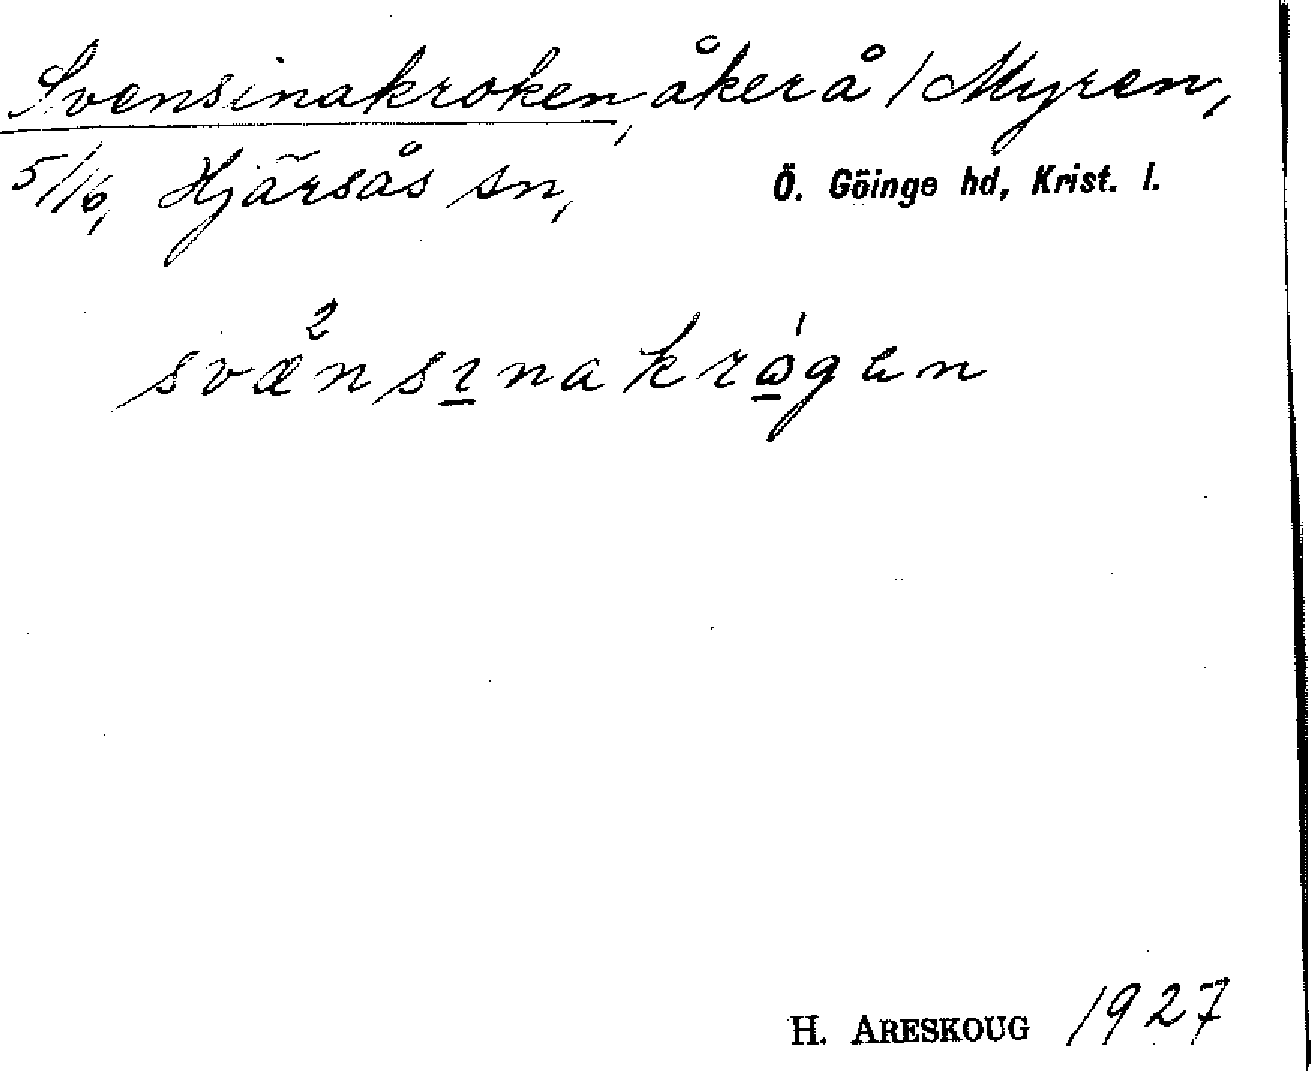 Svensinakroken, åker å 1 Myren,
5/16, Hjärsås sn, Ö. Göinge hd, Krist. l.
svæ²nsı̲nakrώ̲gen
H. ARESKOUG 1927